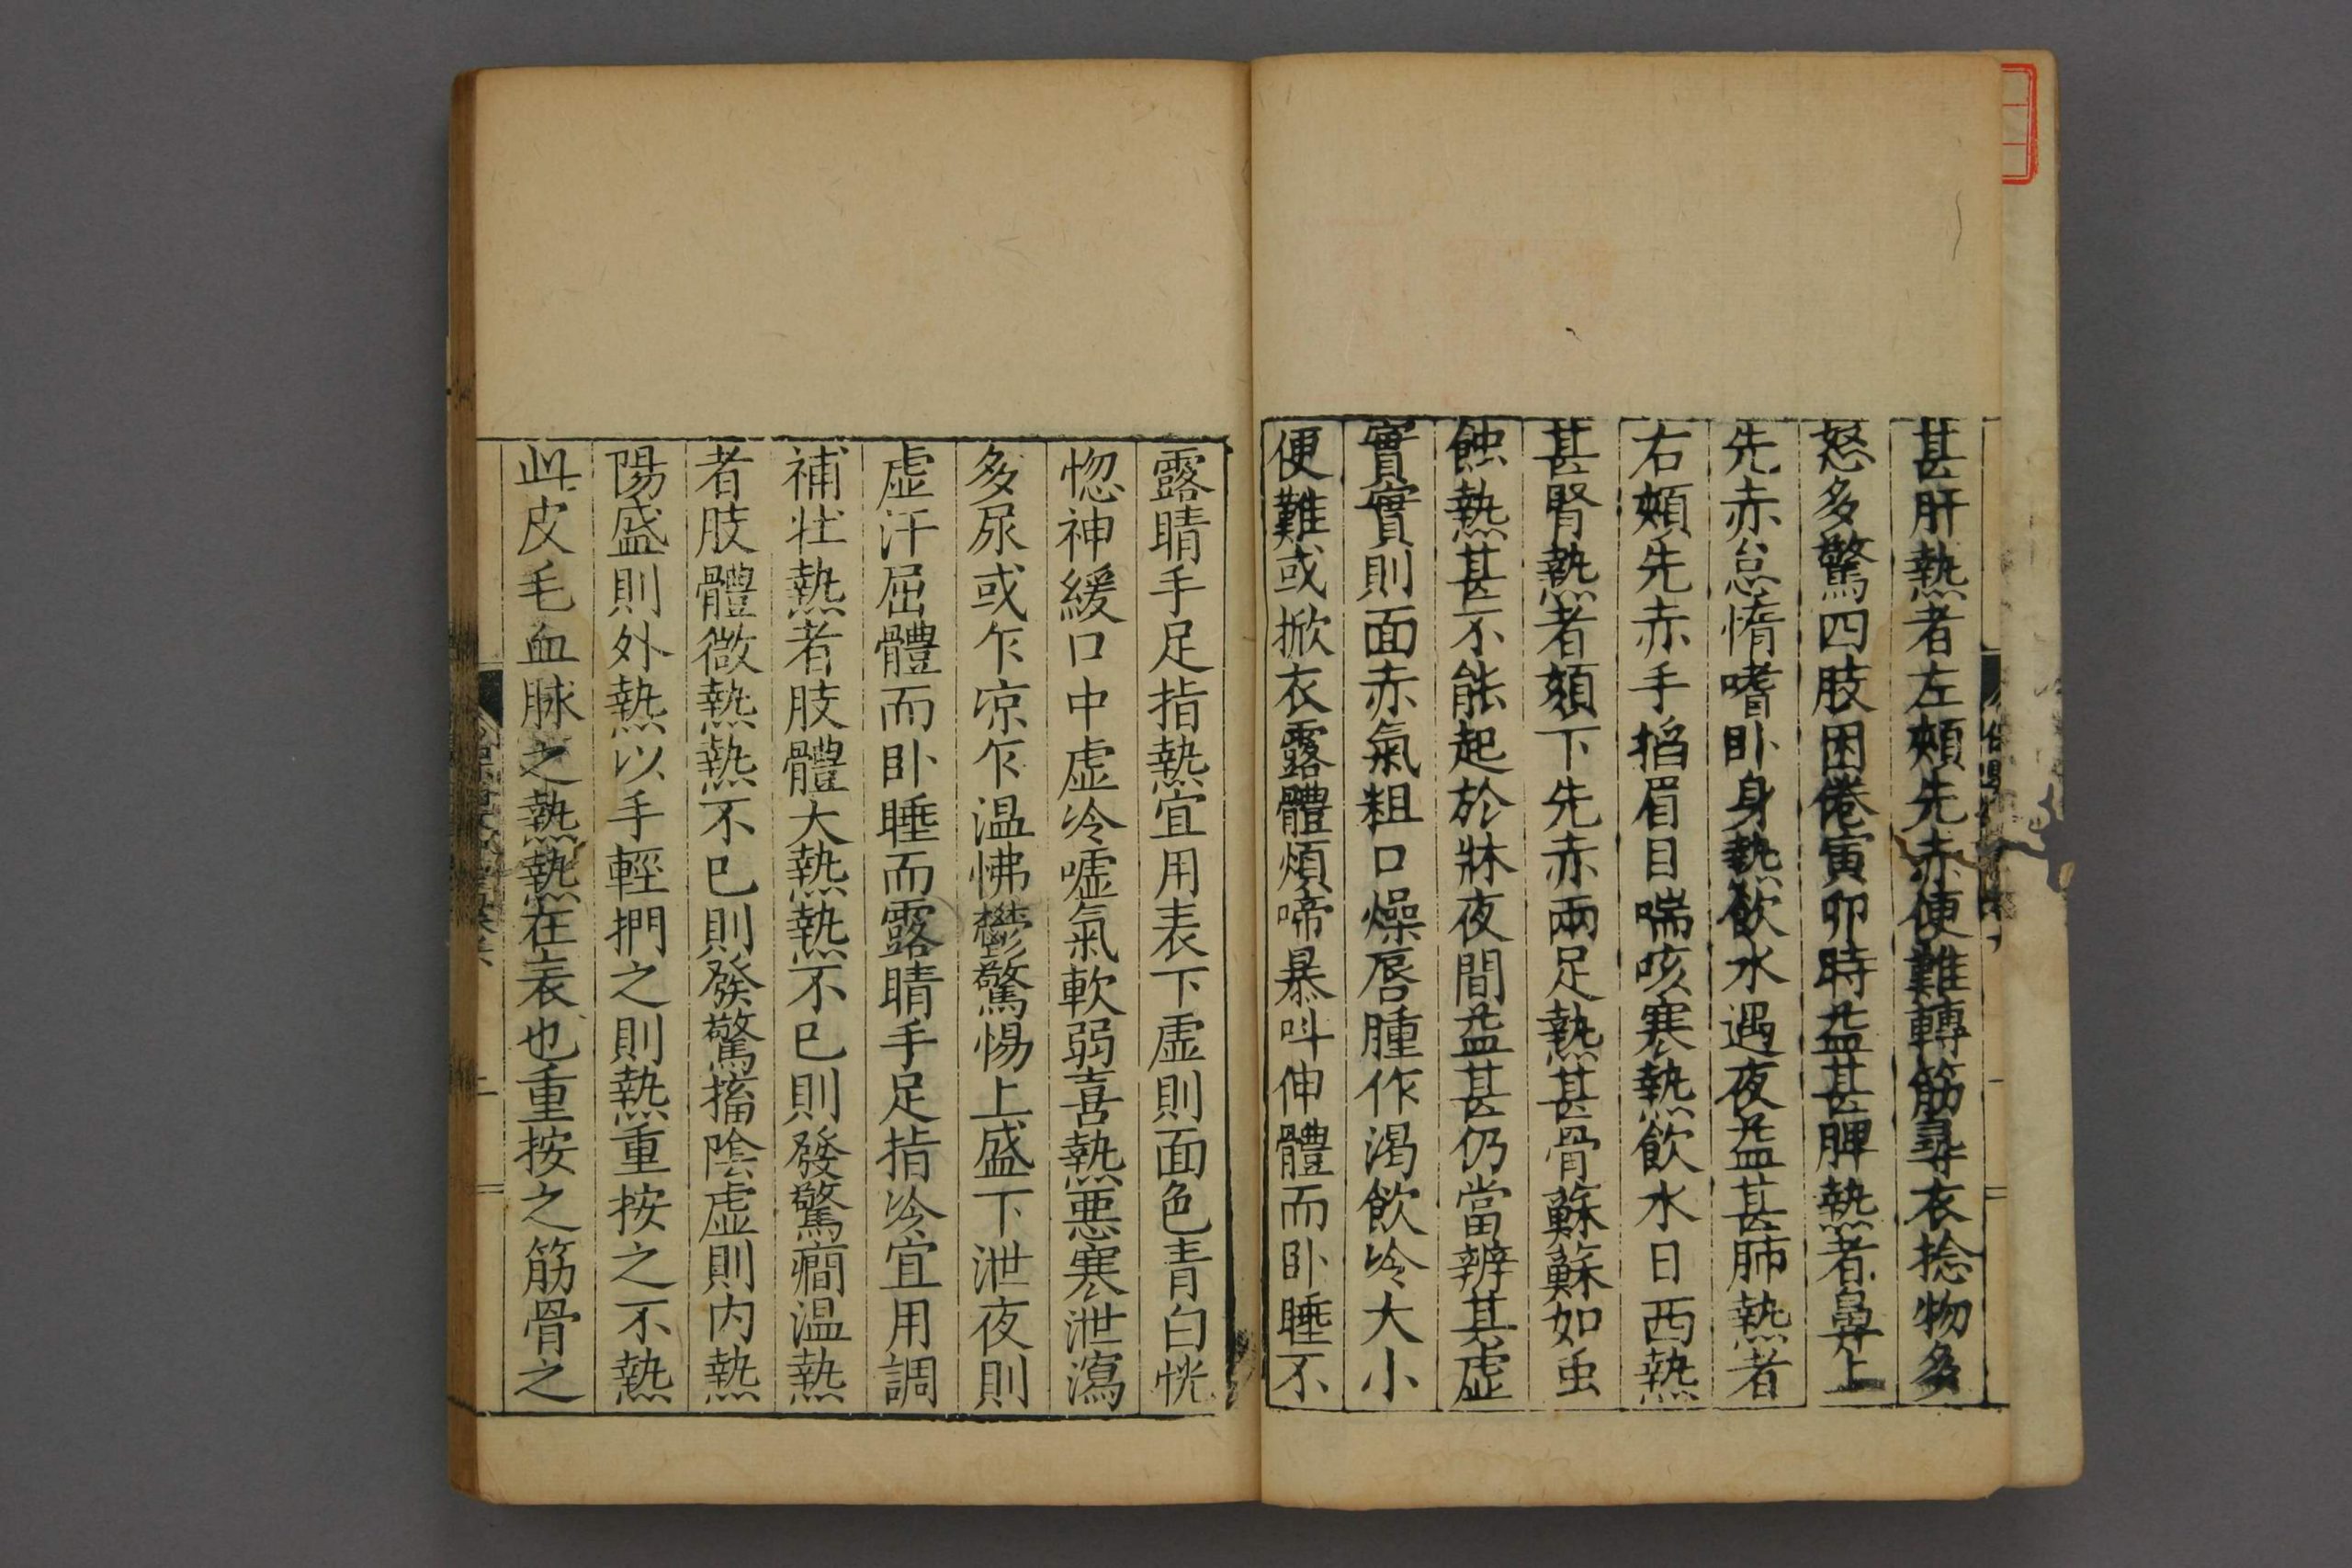 甚肝熱者左頰先赤便難轉筋尋衣捻物多
怒多驚四肢困倦寅卯時益甚脾熱者鼻上
先赤怠惰嗜卧身熱飲水遇夜益甚肺熱者
右頰先赤手掐眉目喘咳寒熱飲水日西熱
甚腎熱者頦下先赤兩足熱甚骨蘇蘇如虫
蝕熱甚不能起於牀夜間益甚仍當辨其虛
實實則面赤氣粗口燥唇腫作渴飲冷大小
便難或掀衣露體煩啼暴叫伸體而卧睡不
露睛手足指熱宜用表下虛則面色青白恍
惚神緩口中虛冷嘘氣軟弱喜熱惡寒泄瀉
多尿或乍凉乍温怫鬱驚惕上盛下泄夜則
虛汗屈體而卧睡而露睛手足指冷宜用調
補壯熱者肢體大熱熱不已則發驚癇温熱
者肢體微熱熱不已則發驚搐陰虛則内熱
陽盛則外熱以手輕捫之則熱重按之不熱
此皮毛血脉之熱熱在表也重按之筋骨之